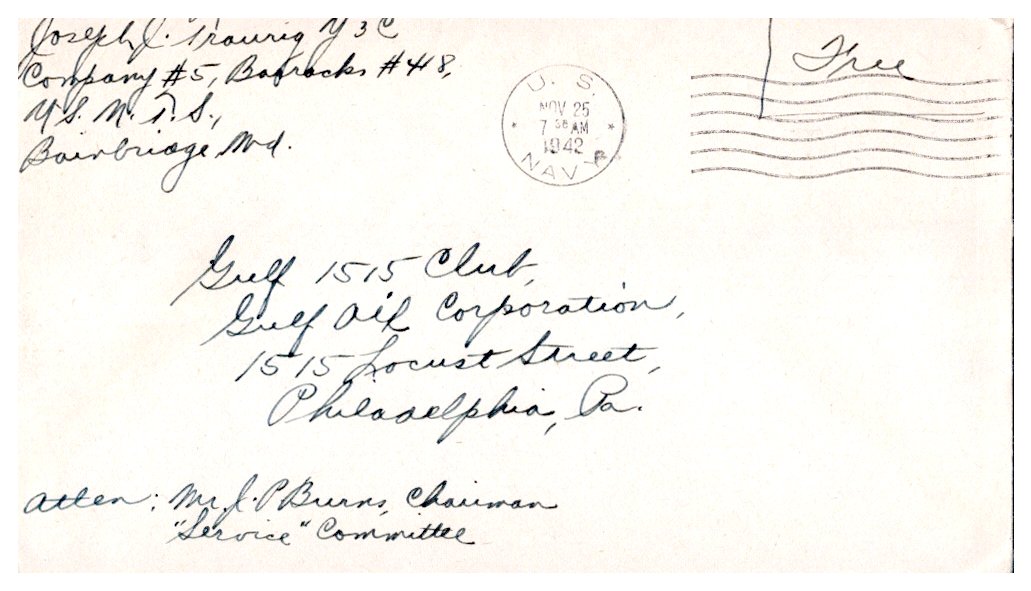 Joseph J. Traurig Y 3 C
Company #5, Barracks #418,
U.S.N.T.S.,
Bainbridge, Md.
U. S.
NOV 25
7 30 AM
1942
NAVY
Free
Gulf 1515 Club,
Gulf Oil Corporation,
1515 Locust Street,
Philadelphia, Pa.
Atten: Mr. J. P Burns, Chairman
"Service" Committee